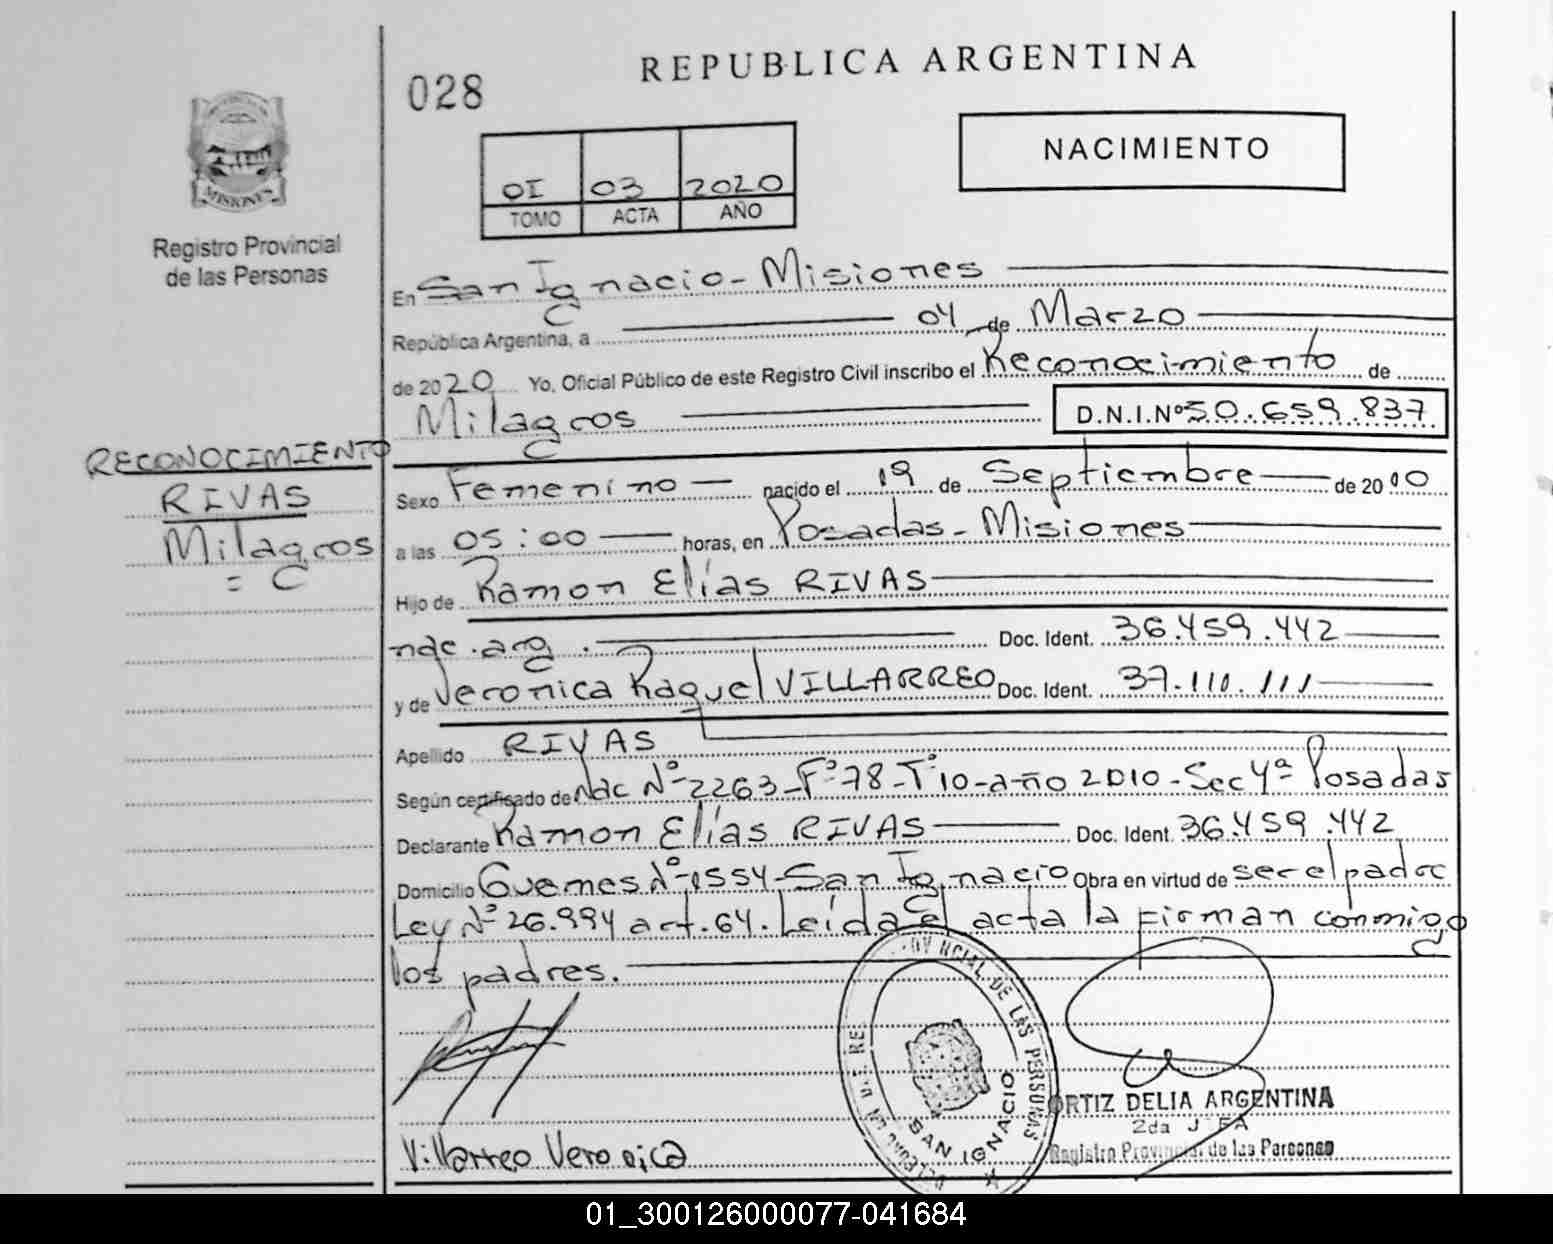 028
REPUBLICA ARGENTINA
NACIMIENTO
OI 03 2020
TOMO ACTA AÑO
MISIONES
Registro Provincial
de las Personas
En San Ignacio - Misiones
República Argentina, a 04 de Marzo
de 2020 Yo, Oficial Público de este Registro Civil inscribo el Reconocimiento de
Milagros D.N.I.Nº 50.659.837
RECONOCIMIENTO
RIVAS
Milagros
Sexo Femenino nacido el 19 de Septiembre de 2010
a las 05:00 horas, en Posadas - Misiones
Hijo de Ramon Elías RIVAS
nac. arg. Doc. Ident. 36.459.442
y de Veronica Raquel VILLARREO Doc. Ident. 37.111.111
Apellido RIVAS
Según certificado de Nac Nº 2263-Fº78-Tº10-año 2010-Sec 4ª Posadas
Declarante Ramon Elías RIVAS Doc. Ident. 36.459.442
Domicilio Guemes Nº 1554-San Ignacio Obra en virtud de ser el padre
Ley Nº 26.994 art. 64. Leída el acta la firman conmigo
los padres.
DE LAS PERSONAS
SAN IGNACIO
ORTIZ DELIA ARGENTINA
2da JEFA
Registro Provincial de las Personas
Villarreo Veronica
01_300126000077-041684